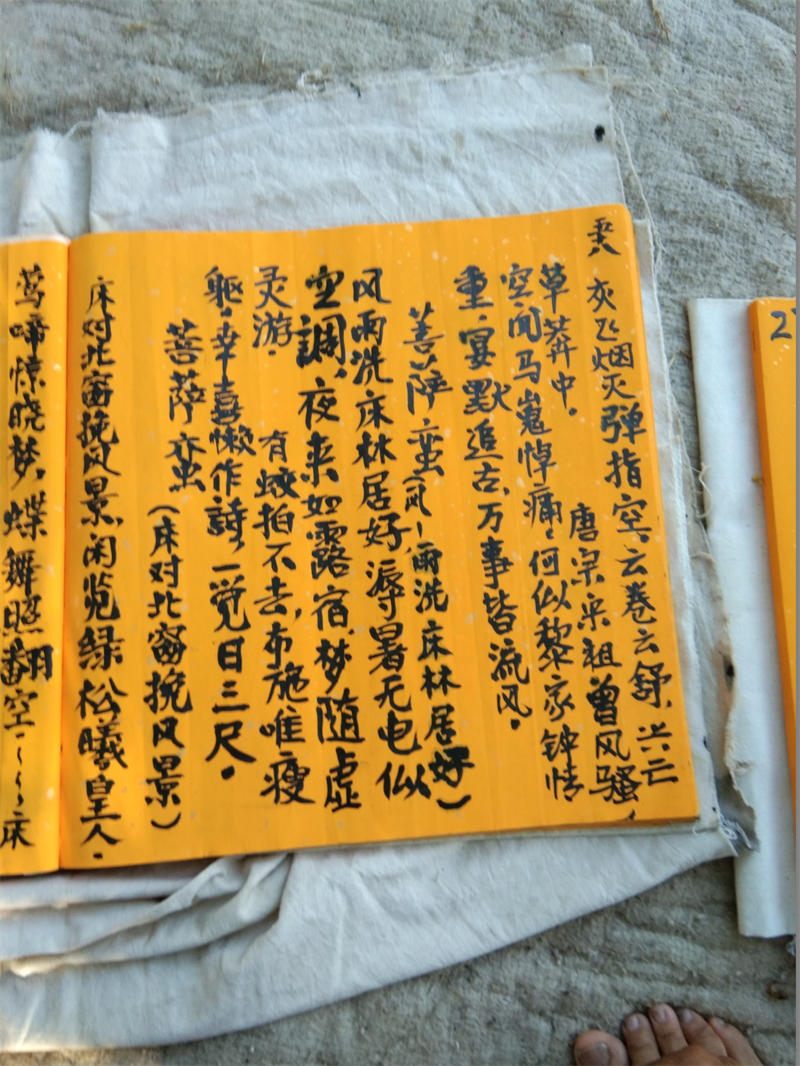 灰飞烟灭弹指空。云卷云舒,
草莽中。唐宗宋祖曾风骚,
空闻马嵬悼痛,何似黎家钟情
重。宴默追古,万事皆流风。
菩萨蛮(风雨洗床林居好)
风雨洗床林居好溽暑无电似
空調,夜来如露宿,梦随虚
灵游。有蚊拍不去,布施唯瘦
躯。幸喜懒作詩,一觉日三尺。
菩萨蛮(床对北窗挽风景)
床对北窗挽风景,闲览绿松曦皇人。
莺啼惊晓梦,蝶舞照翻空~~~床
2